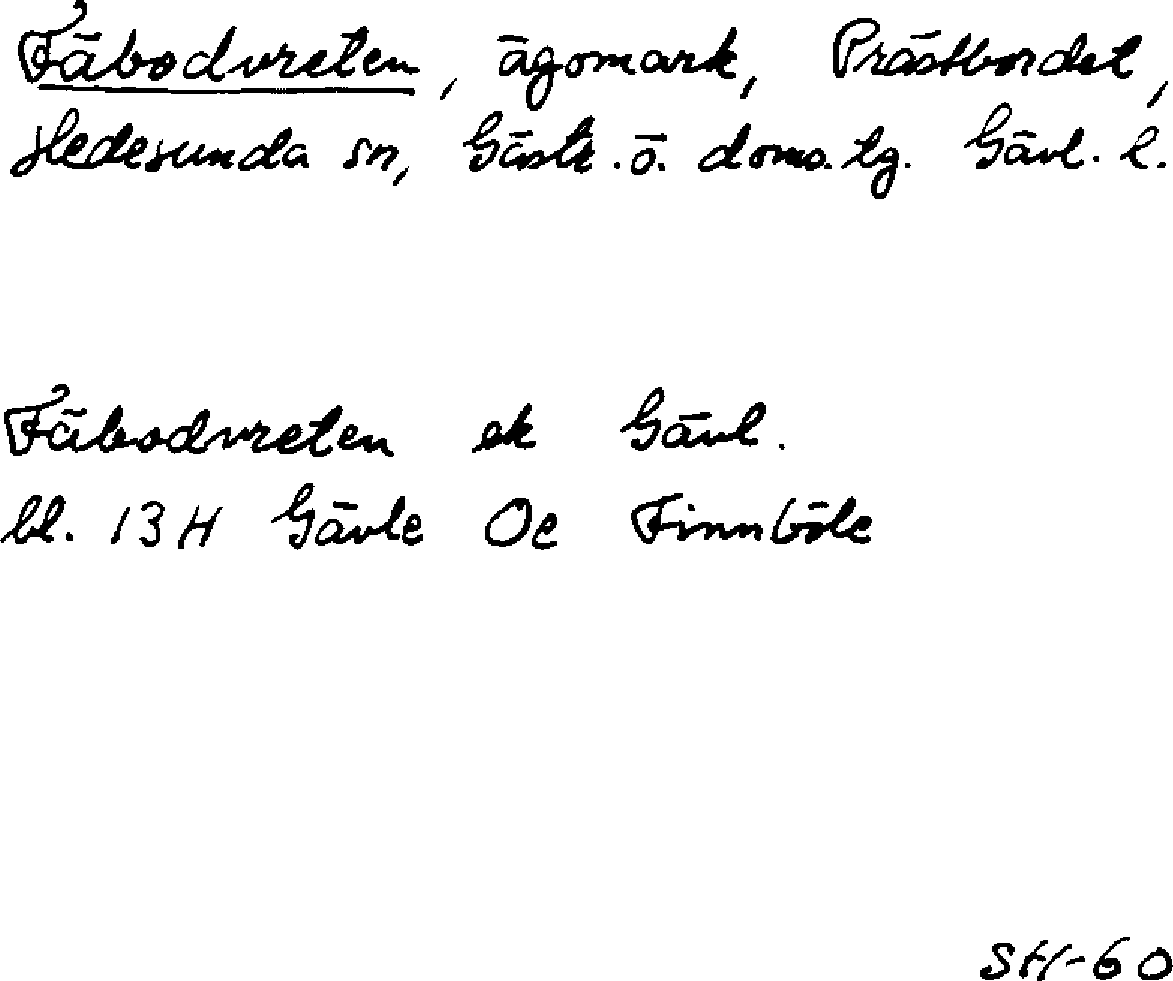 Fäbodvreten, ägomark, Prästbordet,
Hedesunda sn, Gästr. ö. doms. tg. Gävl. l.
Fäbodvreten ek Gävl.
bl. 13H Gävle Oe Finnböle
SH-60